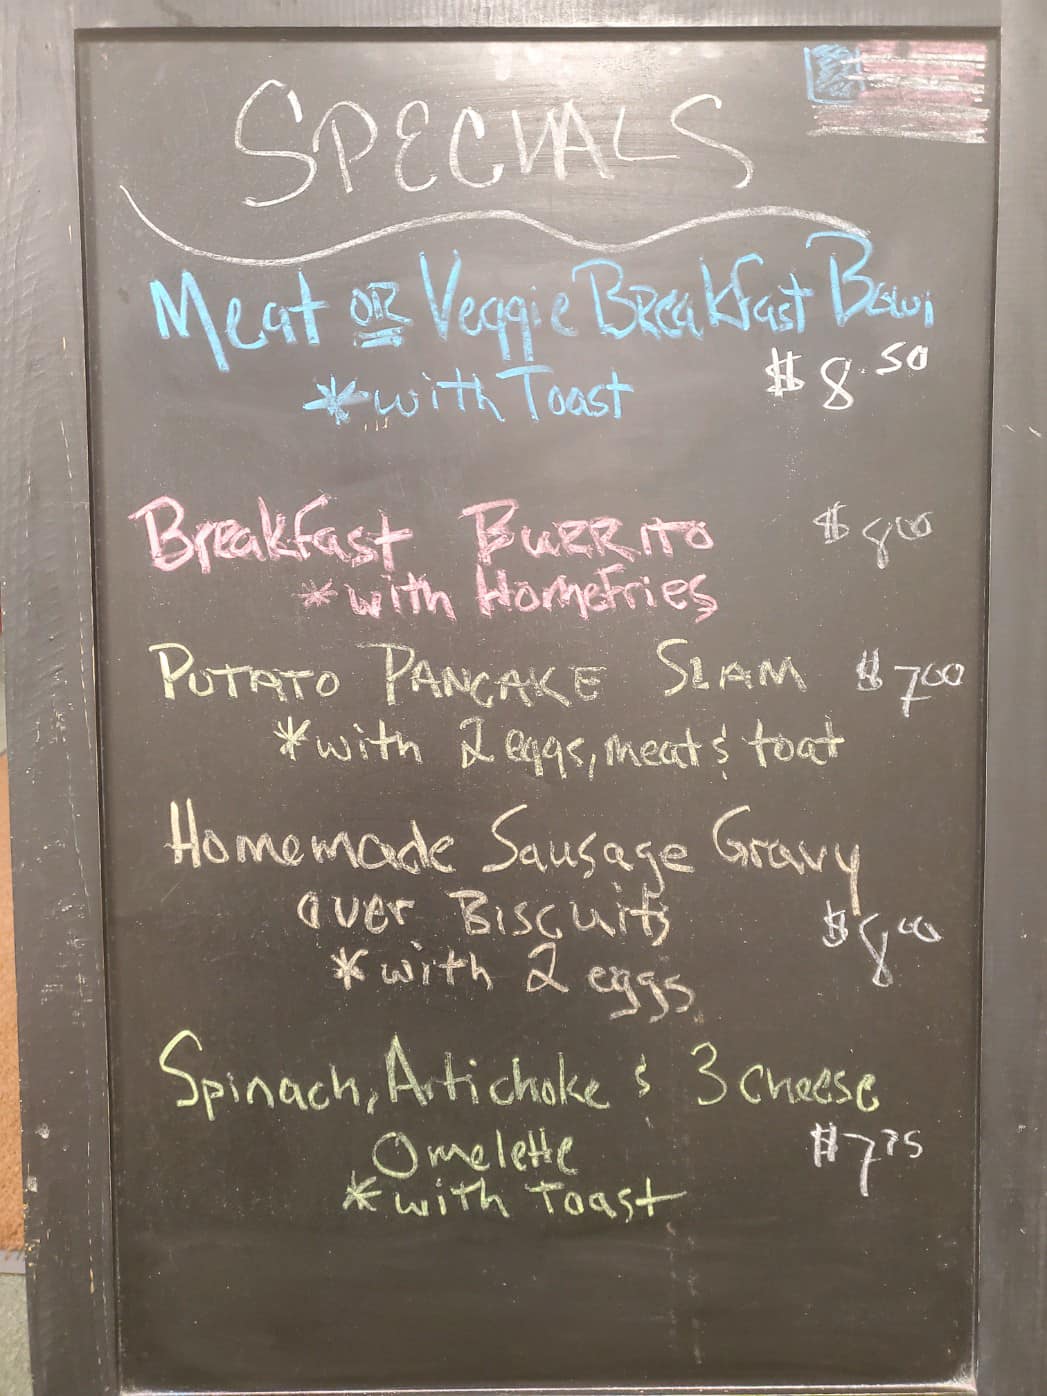 SPECIALS
Meat OR Veggie Breakfast Bowl
*with Toast $8.50
Breakfast BURRITO $800
*with Homefries
POTATO PANCAKE SLAM $700
*with 2 eggs, meat & toat
Homemade Sausage Gravy
over Biscuits $800
*with 2 eggs
Spinach, Artichoke & 3 cheese
Omelette $775
*with toast